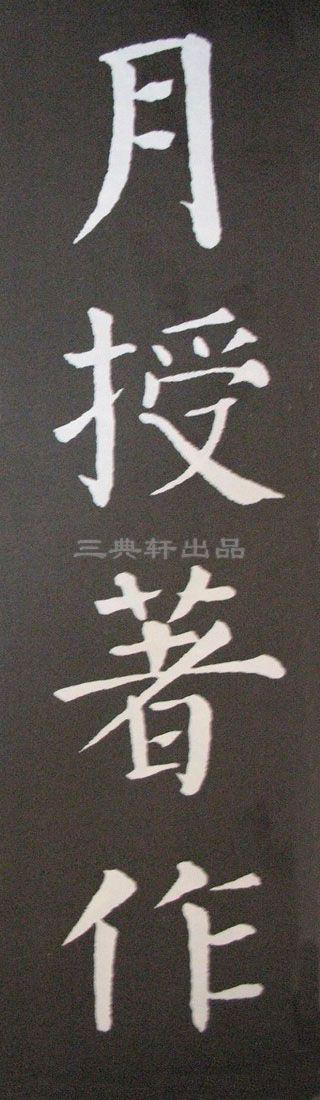 月授著作
三典轩出品